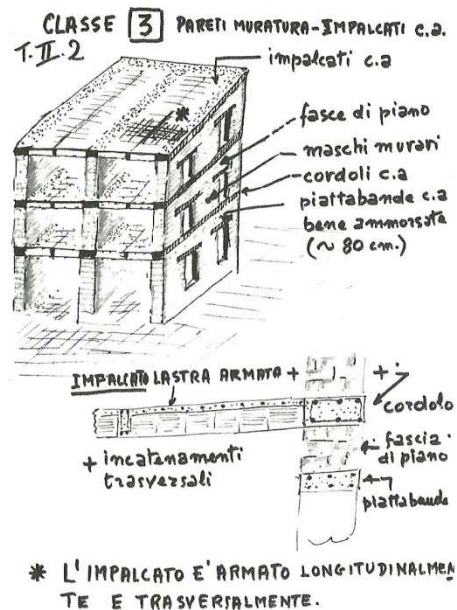 CLASSE 3 PARETI MURATURA-IMPALCATI c.a.
T.II.2
impalcati c.a
*
fasce di piano
maschi murari
cordoli c.a
piattabande c.a
bene ammorsate
(~ 80 cm.)
IMPALCATO LASTRA ARMATA +
+
cordolo
+ incatenamenti
trasversali
fascia
di piano
piattabande
* L'IMPALCATO E' ARMATO LONGITUDINALMEN
TE E TRASVERSALMENTE.